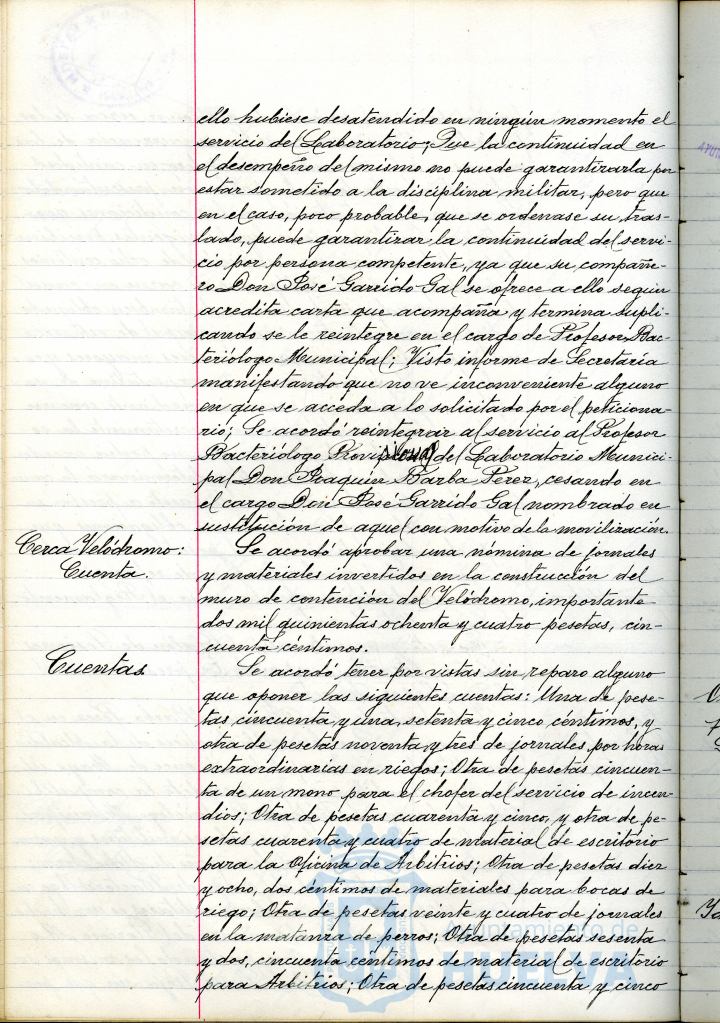 ello hubiese desatendido en ningún momento el
servicio del Laboratorio; Que la continuidad en
el desempeño del mismo no puede garantizarla por
estar sometido a la disciplina militar, pero que
en el caso, poco probable, que se ordenase su tras-
lado, puede garantizar la continuidad del servi-
cio por persona competente, ya que su compañe-
ro Don José Garrido Gal se ofrece a ello según
acredita carta que acompaña y termina supli-
cando se le reintegre en el cargo de Profesor Bac-
teriólogo Municipal; Visto informe de Secretaría
manifestando que no ve inconveniente alguno
en que se acceda a lo solicitado por el peticiona-
rio; Se acordó reintegrar al servicio al Profesor
Bacteriólogo Provisional del Laboratorio Munici-
pal Don Joaquín Barba Perez, cesando en
el cargo Don José Garrido Gal nombrado en
sustitución de aquel con motivo de la movilización.
Cerca Velódromo:
Cuenta.
Se acordó aprobar una nómina de jornales
y materiales invertidos en la construcción del
muro de contención del Velódromo, importante
dos mil quinientas ochenta y cuatro pesetas, cin-
cuenta céntimos.
Cuentas.
Se acordó tener por vistas sin reparo alguno
que oponer las siguientes cuentas: Una de pese-
tas cincuenta y una, setenta y cinco céntimos, y
otra de pesetas noventa y tres de jornales por horas
extraordinarias en riegos; Otra de pesetas cincuen-
ta de un mono para el chofer del servicio de incen-
dios; Otra de pesetas cuarenta y cinco, y otra de pe-
setas cuarenta y cuatro de material de escritorio
para la Oficina de Arbitrios; Otra de pesetas diez
y ocho, dos céntimos de materiales para bocas de
riego; Otra de pesetas veinte y cuatro de jornales
en la matanza de perros; Otra de pesetas sesenta
y dos, cincuenta céntimos de material de escritorio
para Arbitrios; Otra de pesetas cincuenta y cinco
Ayuntamiento de
HUELVA